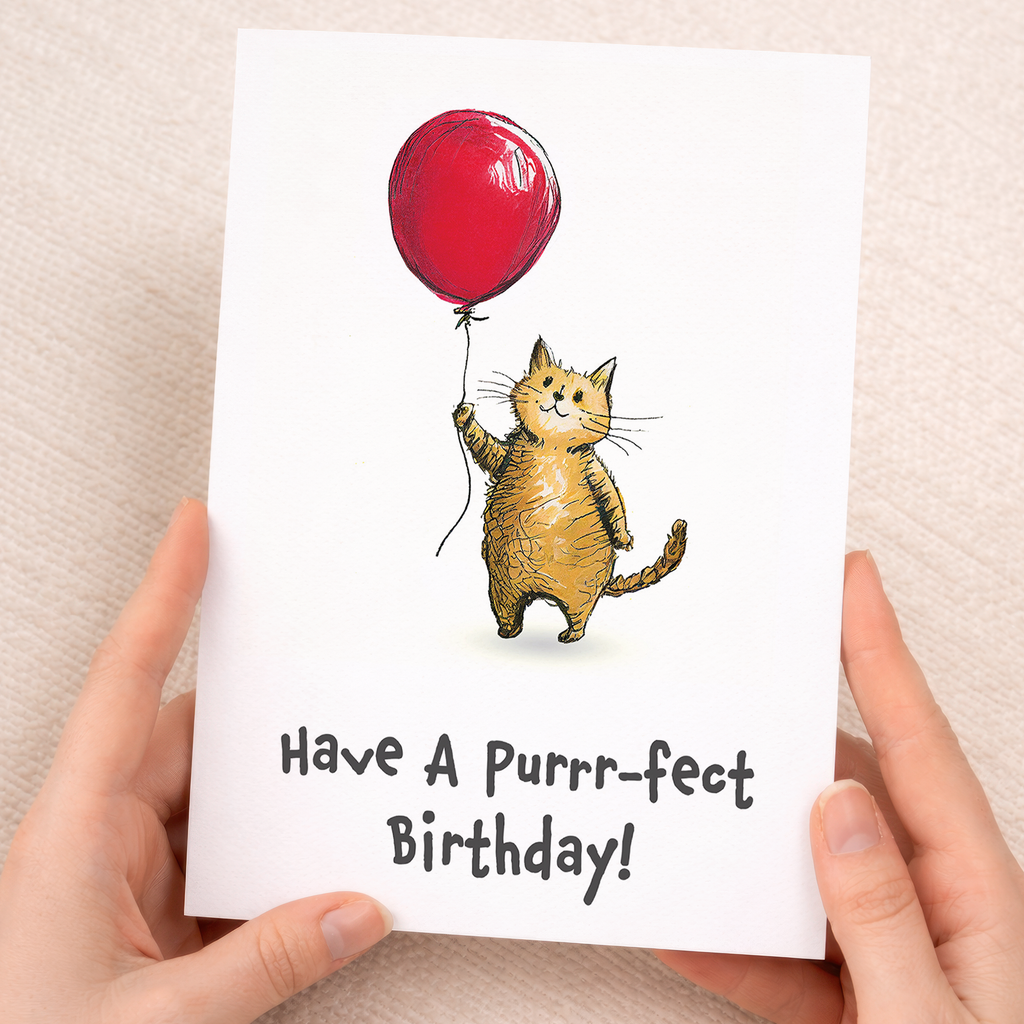 Have A Purrr-fect
Birthday!